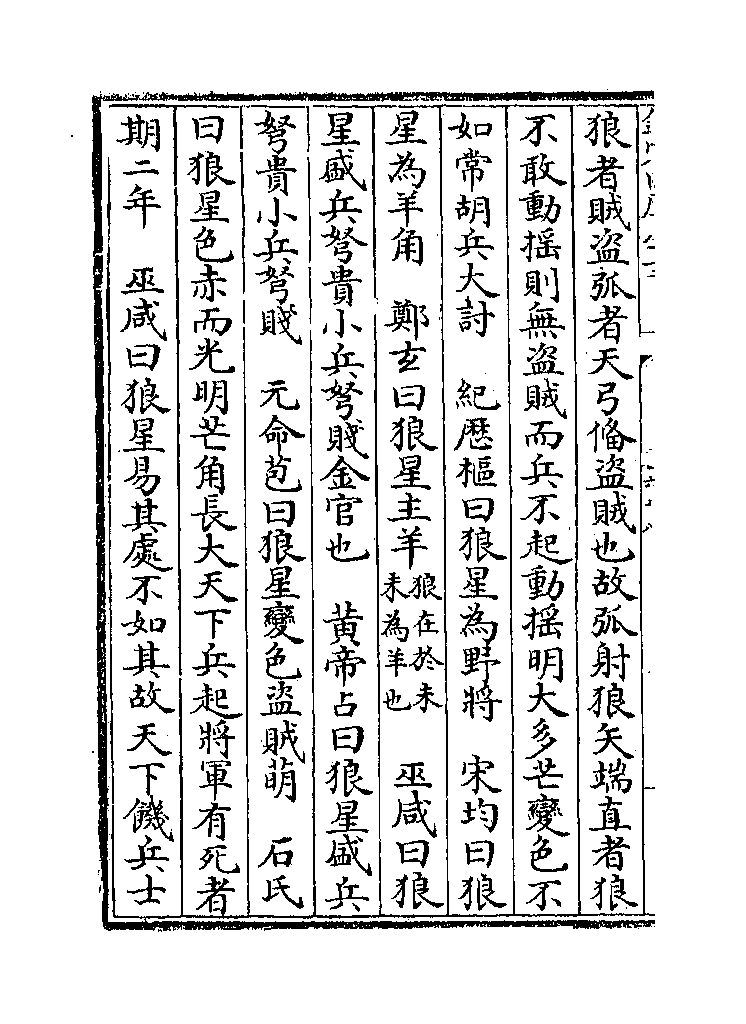 狼者賊盗弧者天弓備盗賊也故弧射狼矢端直者狼
不敢動揺則無盗賊而兵不起動揺明大多芒變色不
如常胡兵大討　紀歴樞曰狼星為野將　宋均曰狼
星為羊角　鄭玄曰狼星主羊狼在於未未為羊也　巫咸曰狼
星盛兵弩貴小兵弩賤金官也　黄帝占曰狼星盛兵
弩貴小兵弩賤　元命苞曰狼星變色盗賊萌　石氏
曰狼星色赤而光明芒角長大天下兵起將軍有死者
期二年　巫咸曰狼星易其處不如其故天下饑兵士